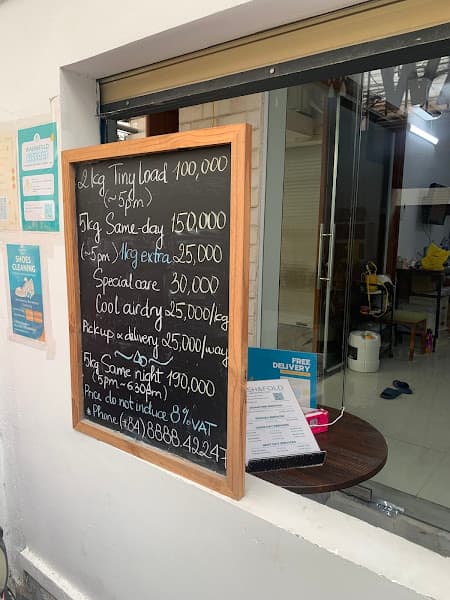 2 kg Tiny Load 100,000
(~5pm)
5kg Same-day 150,000
(~5pm) 1kg extra 25,000
Special care 30,000
Cool airdry 25,000/kg
Pickup & delivery 25,000/way
5kg Same night 190,000
(5pm ~ 6:30pm)
Price do not incluce 8% VAT
* Phone (+84) 8888.42247
WASH&FOLD
SHOES
CLEANING
FREE
DELIVERY
WASH&FOLD